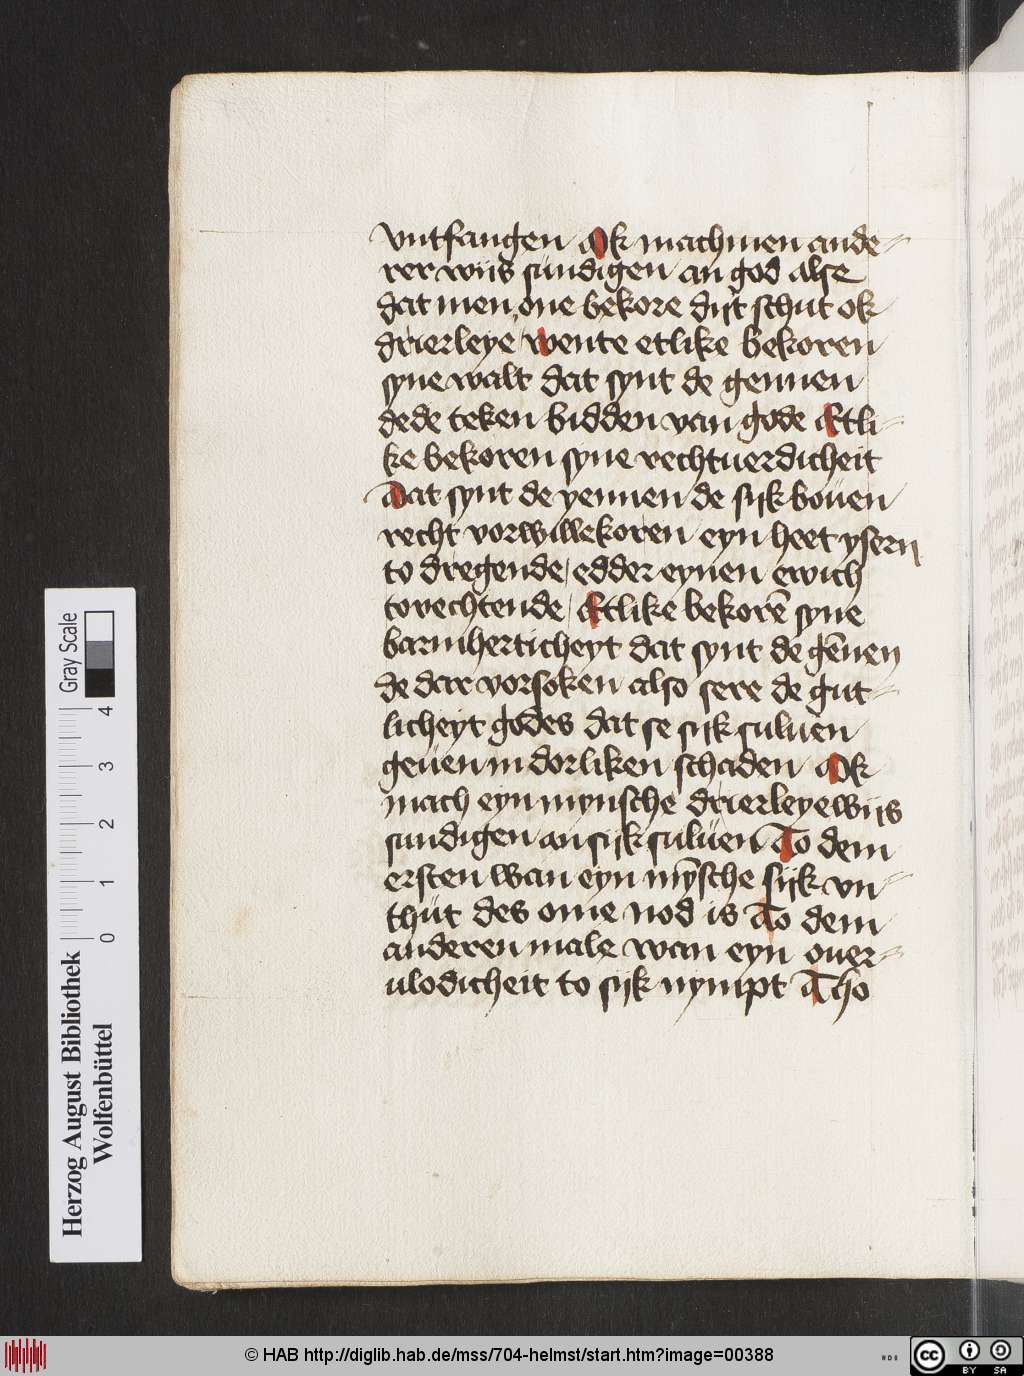 vntfangen Ok mach men ande⸗
rer wijs sundigen an god alse
dat men one bekore dijt schut ok
drierleye / wente etlike bekoren
syne walt dat synt de gennen
de de teken bidden van gode Etli⸗
ke bekoren syne rechtuerdicheit
Dat synt de yennen de sijk bouen
recht vorwillekoren eyn heet ysern
to dregende / edder eynen ewich
to vechtende / Etlike bekorē syne
barmherticheyt dat synt de gēnen
de dar vorsoken also sere de gut⸗
licheyt godes dat se sijk suluen
geuen in dorliken schaden Ok
mach eyn mynsche drierleye wijs
sundigen an sijk suluen To dem
ersten wan eyn mȳsche sijk vn⸗
thut des ome nod is To dem
anderen male wan eyn ouer⸗
ulodicheit to sijk nympt Tho
Herzog August Bibliothek
Wolfenbüttel
0 1 2 3 4
Gray Scale
© HAB http://diglib.hab.de/mss/704-helmst/start.htm?image=00388
cc BY SA